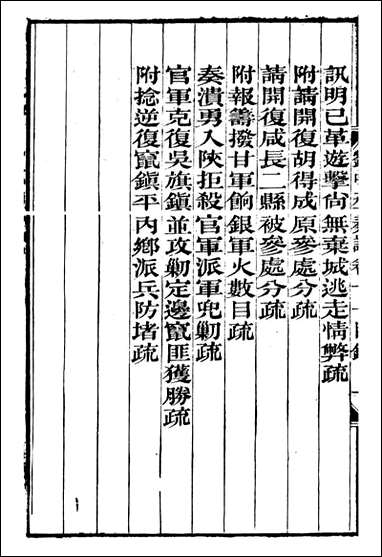 訊明已革遊擊尙無棄城逃走情弊疏
附請開復胡得成原參處分疏
請開復咸長二縣被參處分疏
附報籌撥甘軍餉銀軍火數目疏
奏潰勇入陝拒殺官軍派軍兜勦疏
官軍克復吳旗鎮並攻勦定邊竄匪獲勝疏
附捻逆復竄鎮平內鄉派兵防堵疏